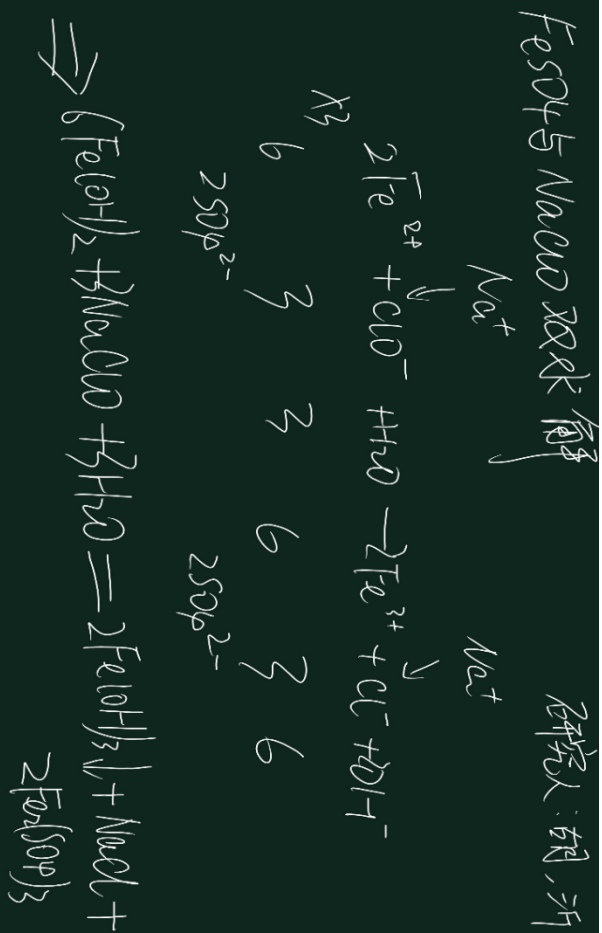 FeSO4与NaClO双水解 研究人:
Na⁺ Na⁺
2Fe²⁺ + ClO⁻ + H2O — 2Fe³⁺ + Cl⁻ + 2OH⁻
×3 6 3 3 6 3 6
2SO4²⁻ 2SO4²⁻
⇒ 6Fe(OH)2 + 3NaClO + 3H2O = 2Fe(OH)3↓ + NaCl +
2Fe2(SO4)3